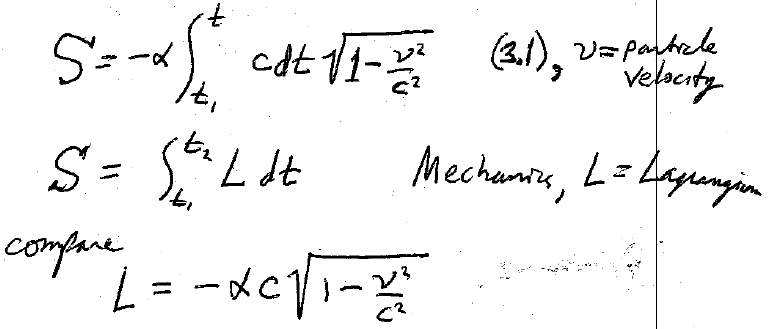 S = -α ∫_{t₁}^{t} c dt √(1 - v²/c²) (3.1), v = particle velocity
S = ∫_{t₁}^{t₂} L dt Mechanics, L = Lagrangian
compare
L = -α c √(1 - v²/c²)